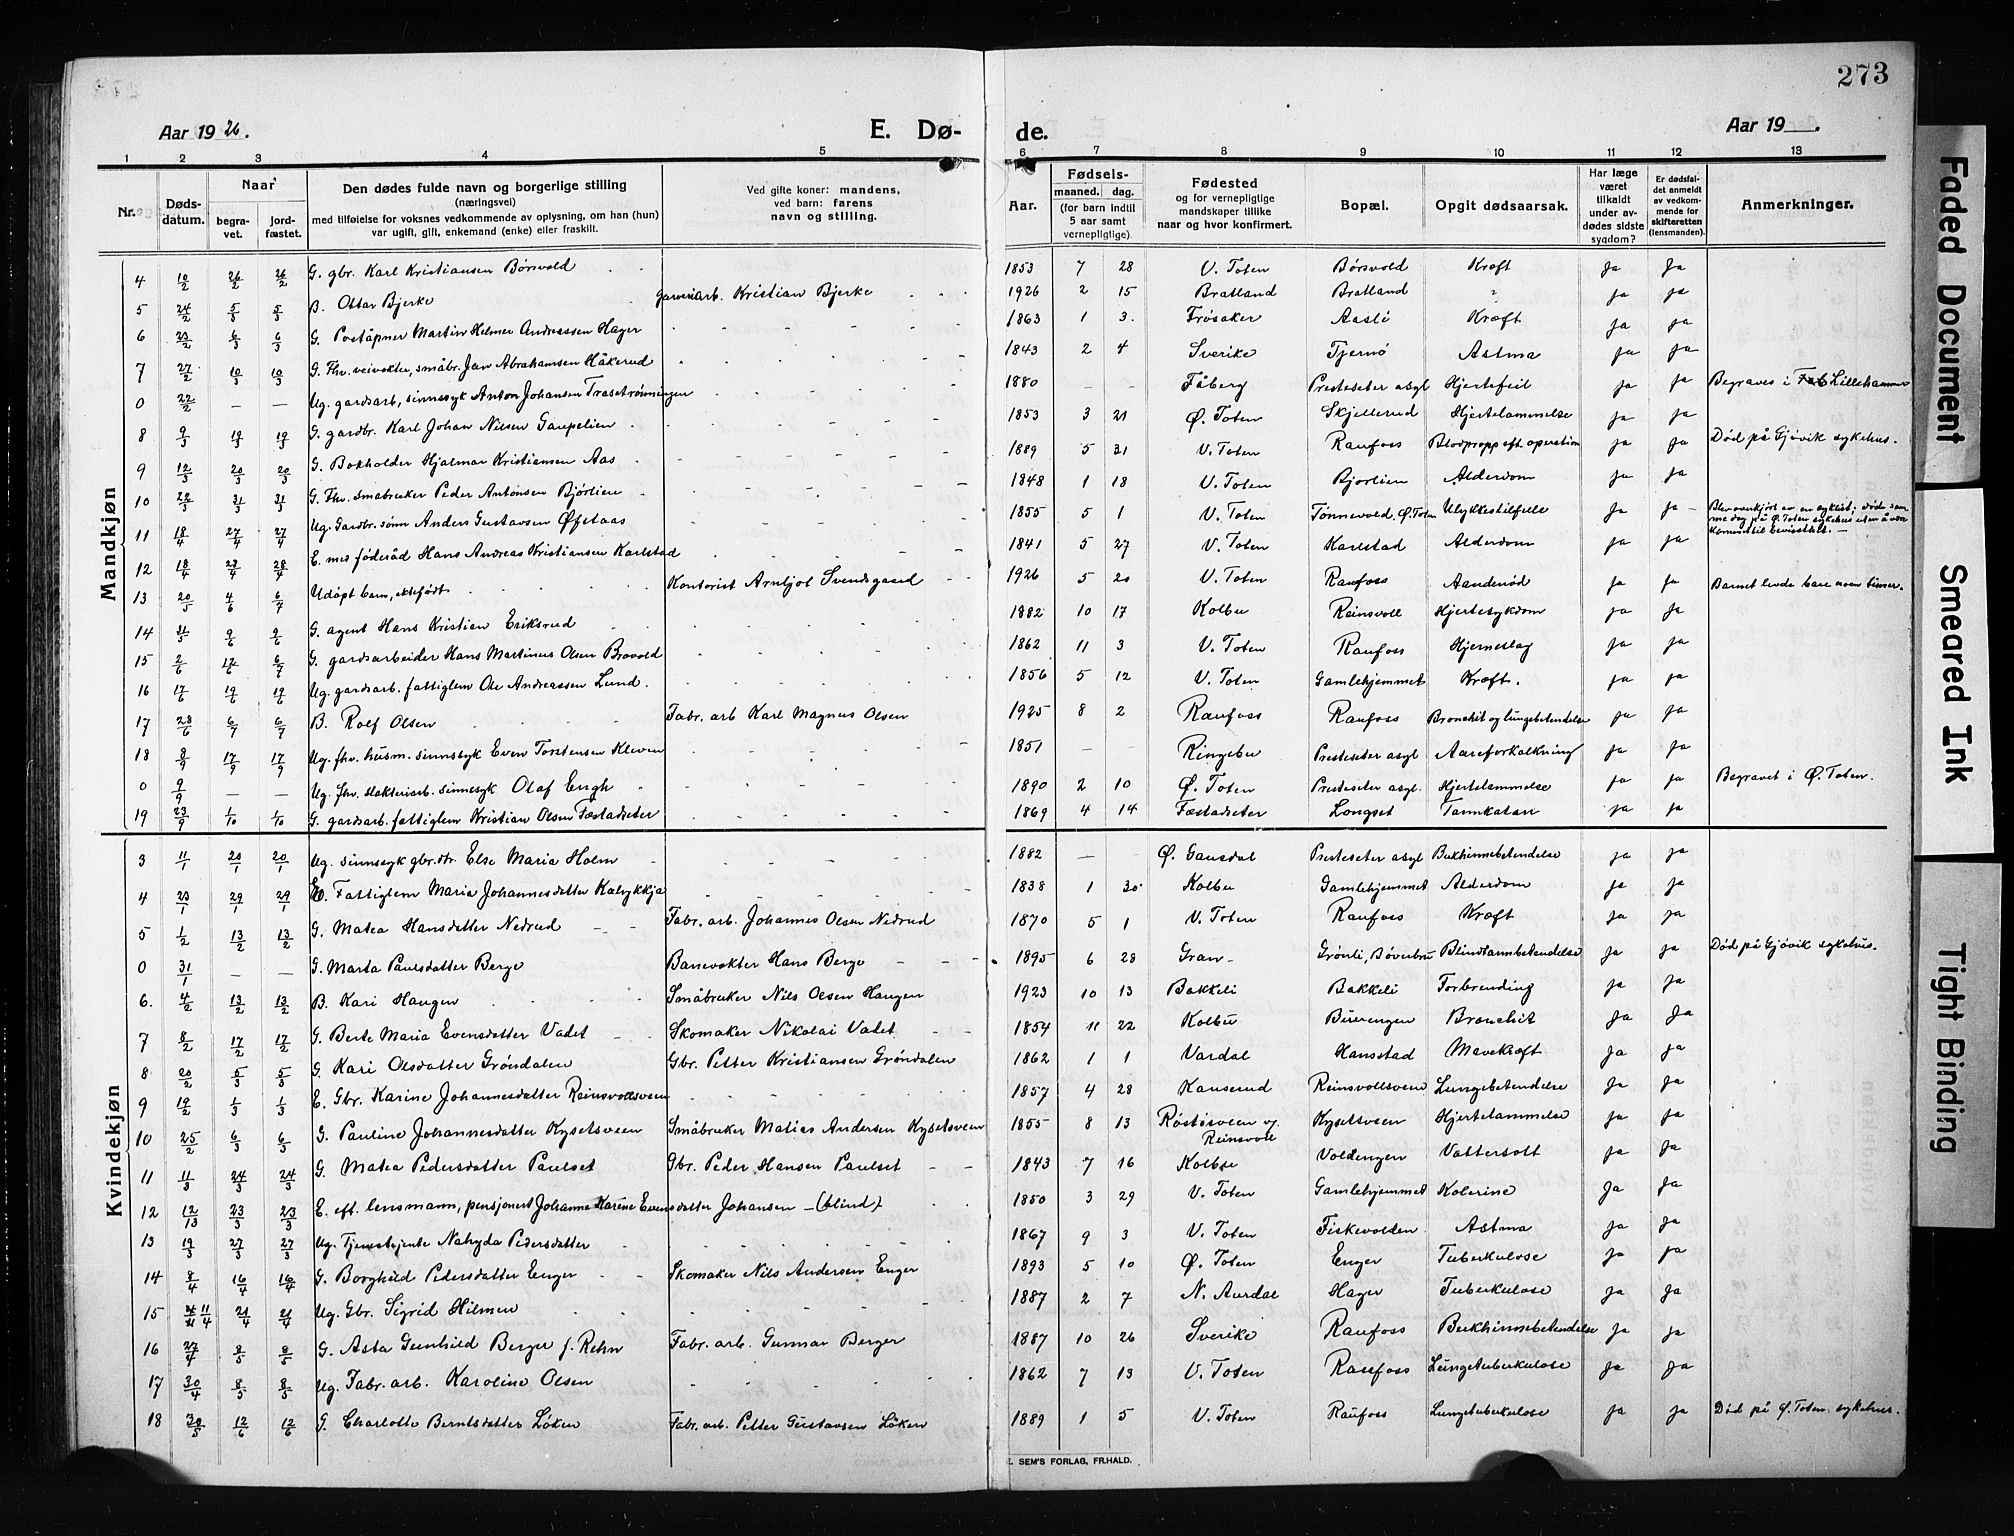 273
Aar 19 26.
E. Dø-
de.
Aar 19 .
1 2 3 4 5 6 7 8 9 10 11 12 13
Nr.
Døds-
datum.
Naar
begra-
vet.
jord-
fæstet.
Den dødes fulde navn og borgerlige stilling
(næringsvei)
med tilføielse for voksnes vedkommende av oplysning, om han (hun)
var ugift, gift, enkemand (enke) eller fraskilt.
Ved gifte koner: mandens,
ved barn: farens
navn og stilling.
Aar.
Fødsels-
maaned. dag.
(for barn indtil
5 aar samt
vernepligtige).
Fødested
og for vernepligtige
mandskaper tillike
naar og hvor konfirmert.
Bopæl.
Opgit dødsaarsak.
Har læge
været
tilkaldt
under av-
dødes sidste
sygdom?
Er dødsfal-
det anmeldt
av vedkom-
mende for
skifteretten
(lensmanden).
Anmerkninger.
Mandkjøn
4 10/2 26/2 26/2 G. gbr. Karl Kristiansen Børsvold 1853 7 28 V. Toten Børsvold Kræft Ja Ja
5 24/2 5/3 5/3 B. Ottar Bjerke garveriarb. Kristian Bjerke 1926 2 15 Bratland Bratland ? ja ja
6 23/2 6/3 6/3 G. Poståpner Martin Helmer Andreassen Hager 1863 1 3. Frøsaker Aasli Kræft ja ja
7 27/2 10/3 10/3 G. Fhv. veivokter, småbr. Jan Abrahamsen Håkerud 1843 2 4 Sverike Tjernø Astma ja ja
0 22/2 — — Ug. gardsarb, sinnssyk Anton Johansen Trasetrønningen 1880 — — Fåberg Presteseter asyl Hjertefeil ja ja Begraves i Lillehammer
8 9/3 19/3 19/3 G. gardbr. Karl Johan Nilsen Gaupelien 1853 3 21 Ø. Toten Skjellerud Hjertelammelse ja ja
9 12/3 20/3 20/3 G. Bokholder Hjalmar Kristiansen Aas 1889 5 31 V. Toten Raufoss Blodpropp eft. operation ja ja Død på Gjøvik sykehus.
10 23/3 31/3 31/3 G. Fhv. småbruker Peder Antonsen Bjørlien 1848 1 18 V. Toten Bjorlien Alderdom ja ja
11 18/4 27/4 27/4 Ug. Gardbr. sønn Anders Gustavsen Øfstaas 1855 5 1 V. Toten Tønnevold. Ø. Toten Ulykkestilfelle ja ja Blev overkjørt av en syklist; døde sam-
me dag på Ø. Toten sykehus uten å være
kommet til bevissthet. —
12 18/4 28/4 28/4 E. m. føderåd Hans Andreas Kristiansen Karlstad 1841 5 27 V. Toten Karlstad Alderdom ja ja
13 20/5 4/6 6/7 Udøpt barn, ektefødt Kontorist Arnljot Svendsgaard 1926 5 20 V. Toten Raufoss Aandenød ja ja Barnet levde bare noen timer.
14 31/5 9/6 9/6 G. agent Hans Kristian Eriksrud 1882 10 17 Kolbu Reinsvoll Hjertesykdom ja ja
15 2/6 12/6 6/7 G. gardsarbeider Hans Martinus Olsen Brovold 1862 11 3 V. Toten Raufoss Hjerneslag ja ja
16 17/6 19/6 19/6 Ug. gardsarb. fattiglem Ole Andreassen Lund. 1856 5 12 V. Toten Gamlehjemmet Kræft. ja ja
17 28/6 6/7 6/7 B. Rolf Olsen Fabr. arb Karl Magnus Olsen 1925 8 2 Raufoss Raufoss Bronchit og lungebetendelse ja ja
18 8/9 17/9 17/9 Ug. fhv. husm. sinnssyk Even Torstensen Kleven 1851 — Ringebu Presteseter asyl Aareforkalkning ja ja
0 9/9 — — Ug. fhv. slakteriarb. sinnssyk Olaf Engh 1890 2 10 Ø. Toten Presteseter asyl. Hjertelammelse ja ja Begravet i Ø. Toten.
19 23/9 1/10 1/10 G. gardsarb. fattiglem Kristian Olsen Fæstadseter 1869 4 14 Fæstadseter Longset Tarmkatarr ja ja
Kvindekjøn
3 11/1 20/1 20/1 Ug. sinnssyk gbr. dtr. Else Maria Holm 1882 — — Ø. Gausdal Presteseter asyl Bukhinnebetendelse ja ja
4 23/1 29/1 29/1 E. Fattiglem Maria Johannesdatter Kalrykkja 1838 1 30 Kolbu Gamlehjemmet Alderdom ja ja
5 1/2 13/2 13/2 G. Matea Hansdatter Nedrud Fabr. arb. Johannes Olsen Nedrud 1870 5 1 V. Toten Raufoss Kræft ja ja
0 31/1 — — G. Marta Paulsdatter Berge Banevokter Hans Berge 1895 6 28 Gran Grønli, Bøverbru Blindtarmbetendelse ja ja Død på Gjøvik sykehus.
6. 4/2 13/2 13/2 B. Kari Haugen Småbruker Nils Olsen Haugen 1923 10 13 Bakkeli Bakkeli Forbrending ja ja
7 8/2 17/2 17/2 G. Berte Maria Evensdatter Vadet Skomaker Nikolai Vadet 1854 11 22 Kolbu Burengen Bronchit Ja Ja
8 20/2 5/3 5/3 G. Kari Olsdatter Grøndalen Gbr. Petter Kristiansen Grøndalen 1862 1 1 Vardal Hansstad Mavekræft Ja Ja
9 19/2 1/3 1/3 E. Gbr. Karine Johannesdatter Reinsvollsveen 1857 4 28 Kauserud Reinsvollsveen Lungebetendelse ja ja
10 25/2 6/3 6/3 G. Pauline Johannesdatter Kysetsveen Småbruker Matias Andersen Kysetsveen 1855 8 13 Røstøsveen v.
Reinsvoll Kysetsveen Hjertelammelse Ja ja
11 11/3 24/3 24/3 G. Matea Pedersdatter Paulset Gbr. Peder Hansen Paulset 1843 7 16 Kolbu Voldengen Vattersott ja ja
12 12/13 23/3 23/3 E. eft. lensmann, pensjonert Johanne Karine Evensdatter Johansen — (blind) 1850 3 29 V. Toten Gamlehjemmet Kolerine Ja Ja
13 19/3 27/3 27/3 Ug. Tjenestejente Nahyda Pedersdatter 1867 9 3 V. Toten Fiskevolden Astma Ja Ja
14 8/4 16/4 16/4 G. Borghild Pedersdatter Enger Skomaker Nils Andersen Enger 1893 5 10 Ø. Toten Enger Tuberkulose Ja ja
15 11/4 21/4 21/4 Ug. Gbr. Sigrid Hilmen 1887 2 7 N. Aurdal Hager Tuberkulose Ja Ja
16 27/4 8/5 8/5 G. Asta Gunhild Berger f. Rehn Fabr. arb. Gunnar Berger 1887 10 26 Sverike Raufoss Bukhinnebetendelse ja ja
17 30/4 8/5 8/5 Ug. Fabr. arb. Karoline Olsen 1862 7 13 V. Toten Raufoss Lungetuberkulose ja ja
18 30/5 12/6 12/6 G. Charlotte Berntsdatter Løken Fabr. arb. Petter Gustavsen Løken 1889 1 5 V. Toten Raufoss Lungetuberkulose ja ja Død på Ø. Toten sykehus.
SEM'S FORLAG, FR.HALD.
Faded Document
Smeared Ink
Tight Binding